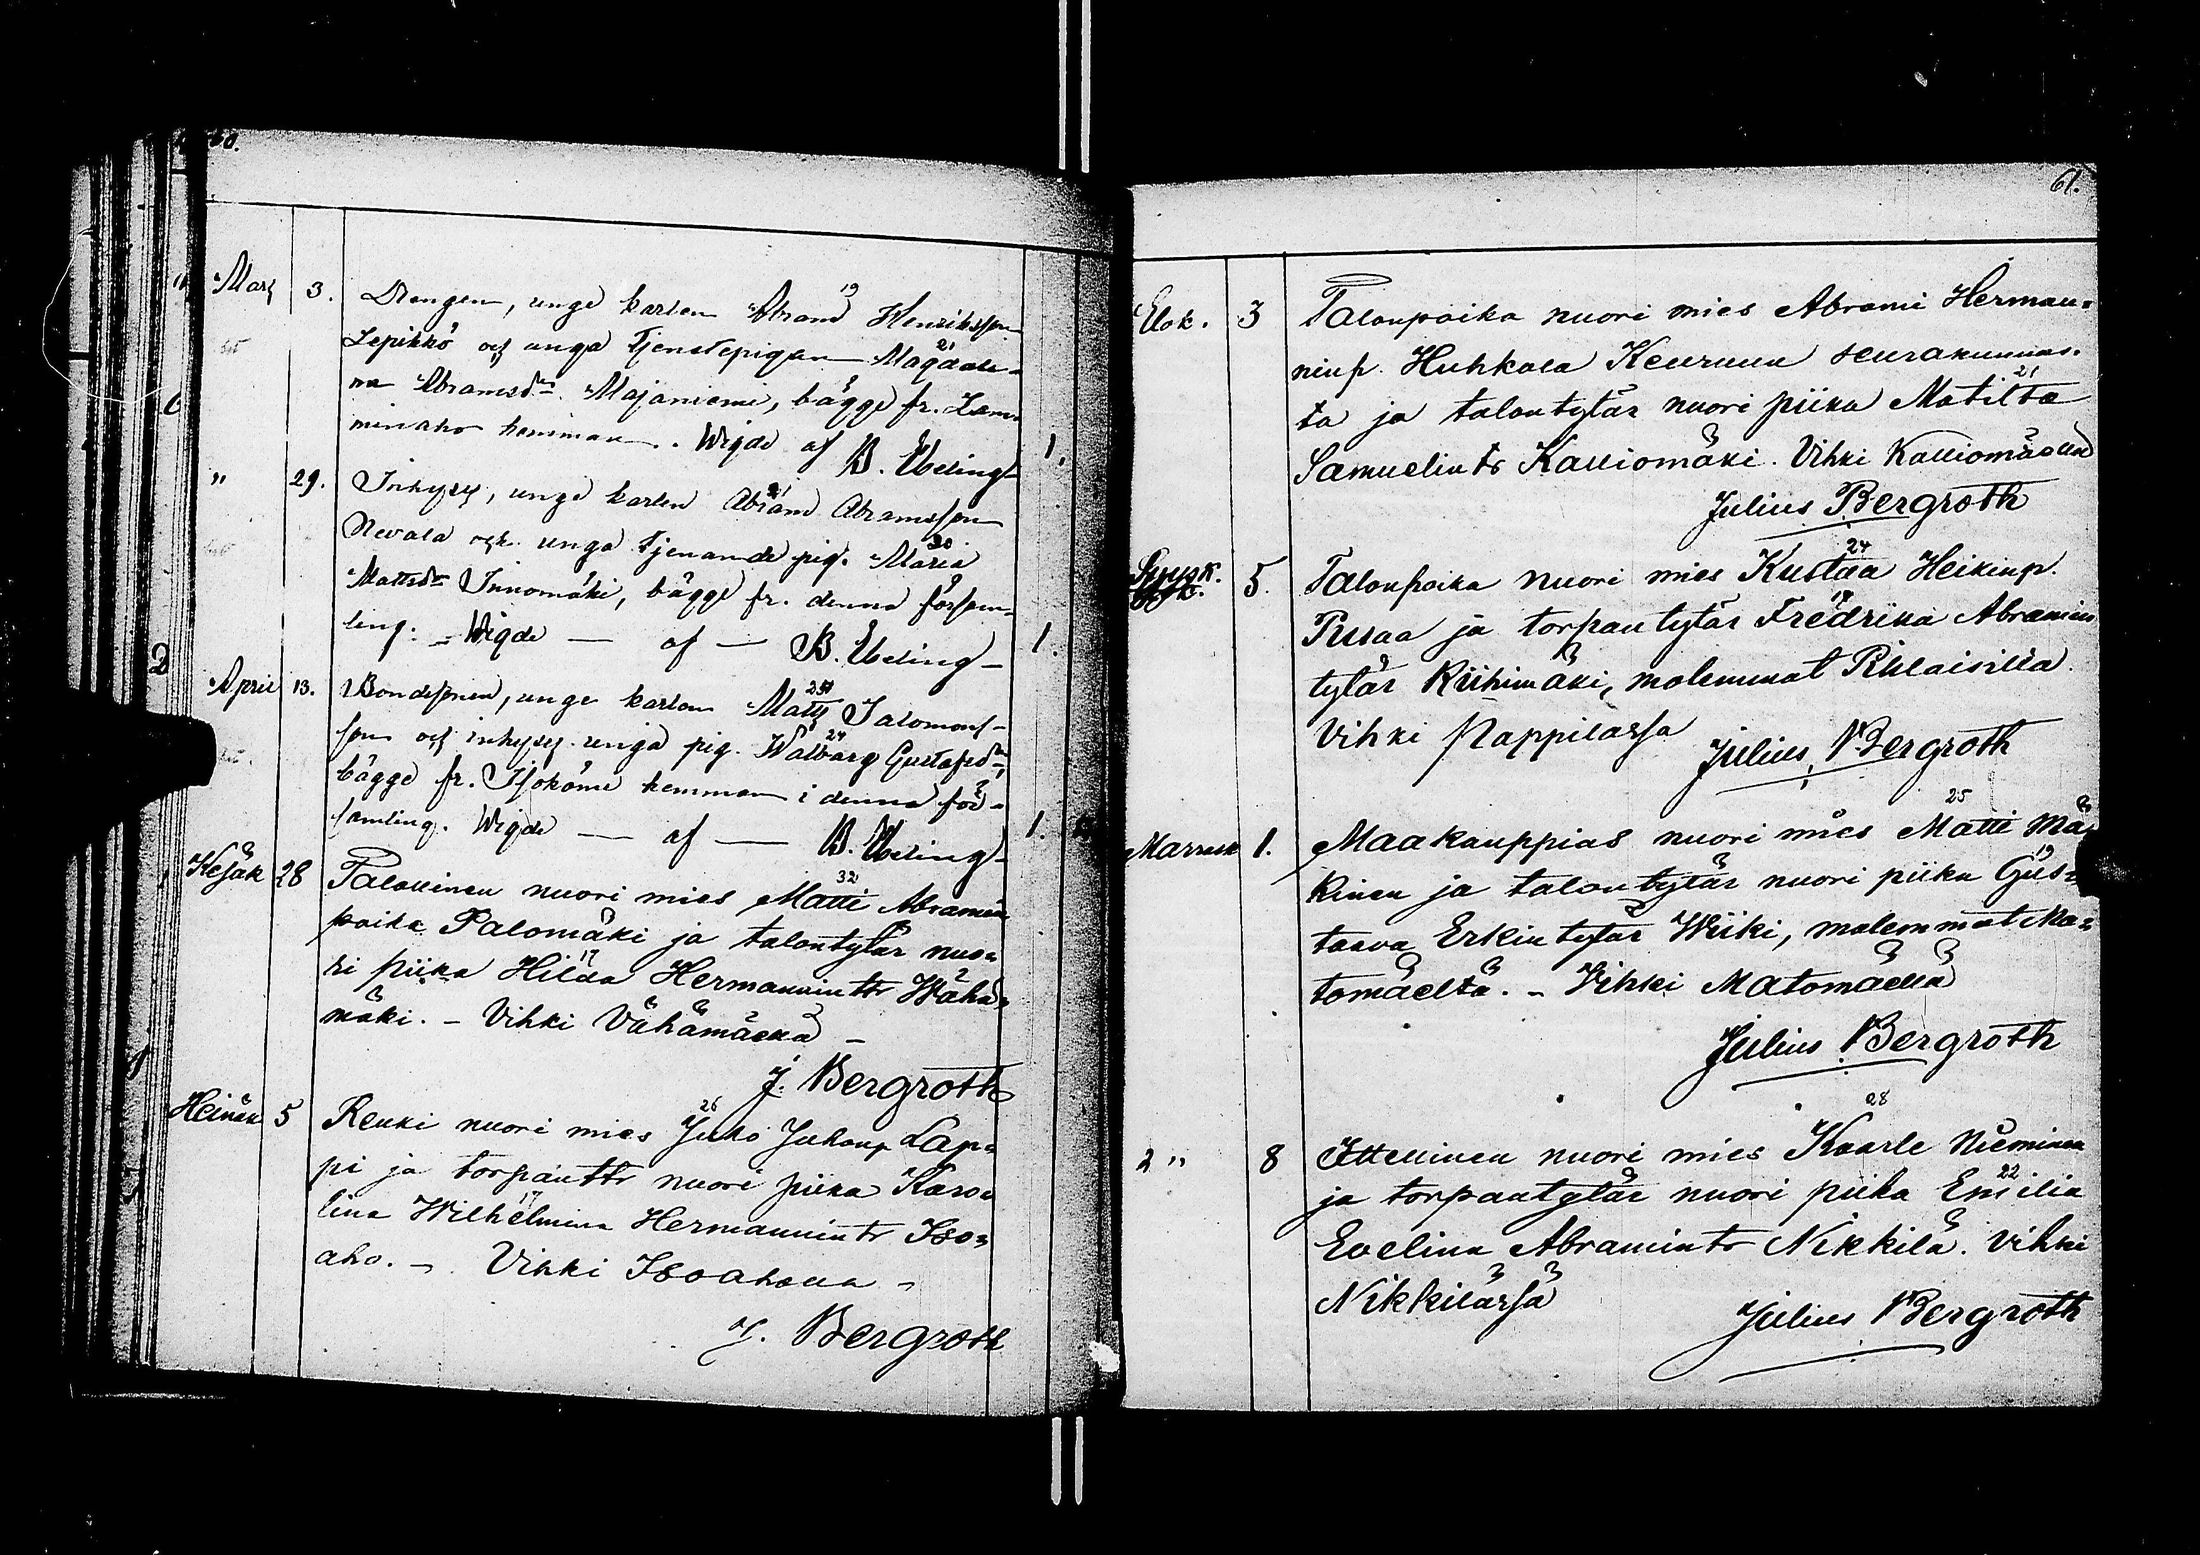 60.
Mars 3. Drengen, unge karlen Abram 19 Henriksson
Lepikkö och unga tjenstepigan Magdale- 21
na Abramsdr. Majaniemi, bägge fr. Lam-
minaho hemman. Wigde af B. Ebeling 1.
" 29. Inhyses, unge karlen Abram 21 Abramsson
Nevala och unga tjenande pig. Maria 20
Mattsdr Innomäki, bägge fr. denna försam-
ling. - Wigde — af — B. Ebeling - 1.
April 13. Bondesonen, unge karlen Matts Salomons-
son och inhyses unga pig. Walborg 24 Gustafsdr,
bägge fr. Isokömi hemman i denna för-
samling. Wigde — af — B. Ebeling 1.
Kesäk 28 Talollinen nuori mies Matti 32 Abramin
poika Palomäki ja talontytär nuo=
ri piika Hilda 17 Hermannintr Wähä=
mäki. - Vihki Vähämäellä -
J. Bergroth
Heinäk 5 Renki nuori mies Juho 26 Juhanp Lap=
pi ja torpantr nuori piika Karo=
lina Wilhelmina 17 Hermannintr Iso=
aho. - Vihki Isoaholla -
J. Bergroth
61.
Elok. 3 Talonpoika nuori mies Abrami Herman=
ninp. Huhkala Keuruun seurakunnas=
ta ja talontytär nuori piika Matilta 21
Samuelintr Kalliomäki. Vihki Kalliomäellä
Julius Bergroth
Syysk. 5. Talonpoika nuori mies Kustaa 24 Heikinp.
Pusaa ja torpantytär Fredrika 19 Abramin
tytär Riihimäki, molemmat Pihlaisilla
Vihki Pappilassa Julius Bergroth
Marrask 1. Maakauppias nuori mies Matti 25 Mä=
kinen ja talontytär nuori piika Gus= 19
taava Erkintytär Wiiki, molemmat Ma=
tomäeltä. - Vihki Matomäellä
Julius Bergroth
2 " 8 Itsellinen nuori mies Kaarle 28 Nieminen
ja torpantytär nuori piika Emilia 22
Evelina Abramintr Nikkilä. Vihki
Nikkilässä Julius Bergroth